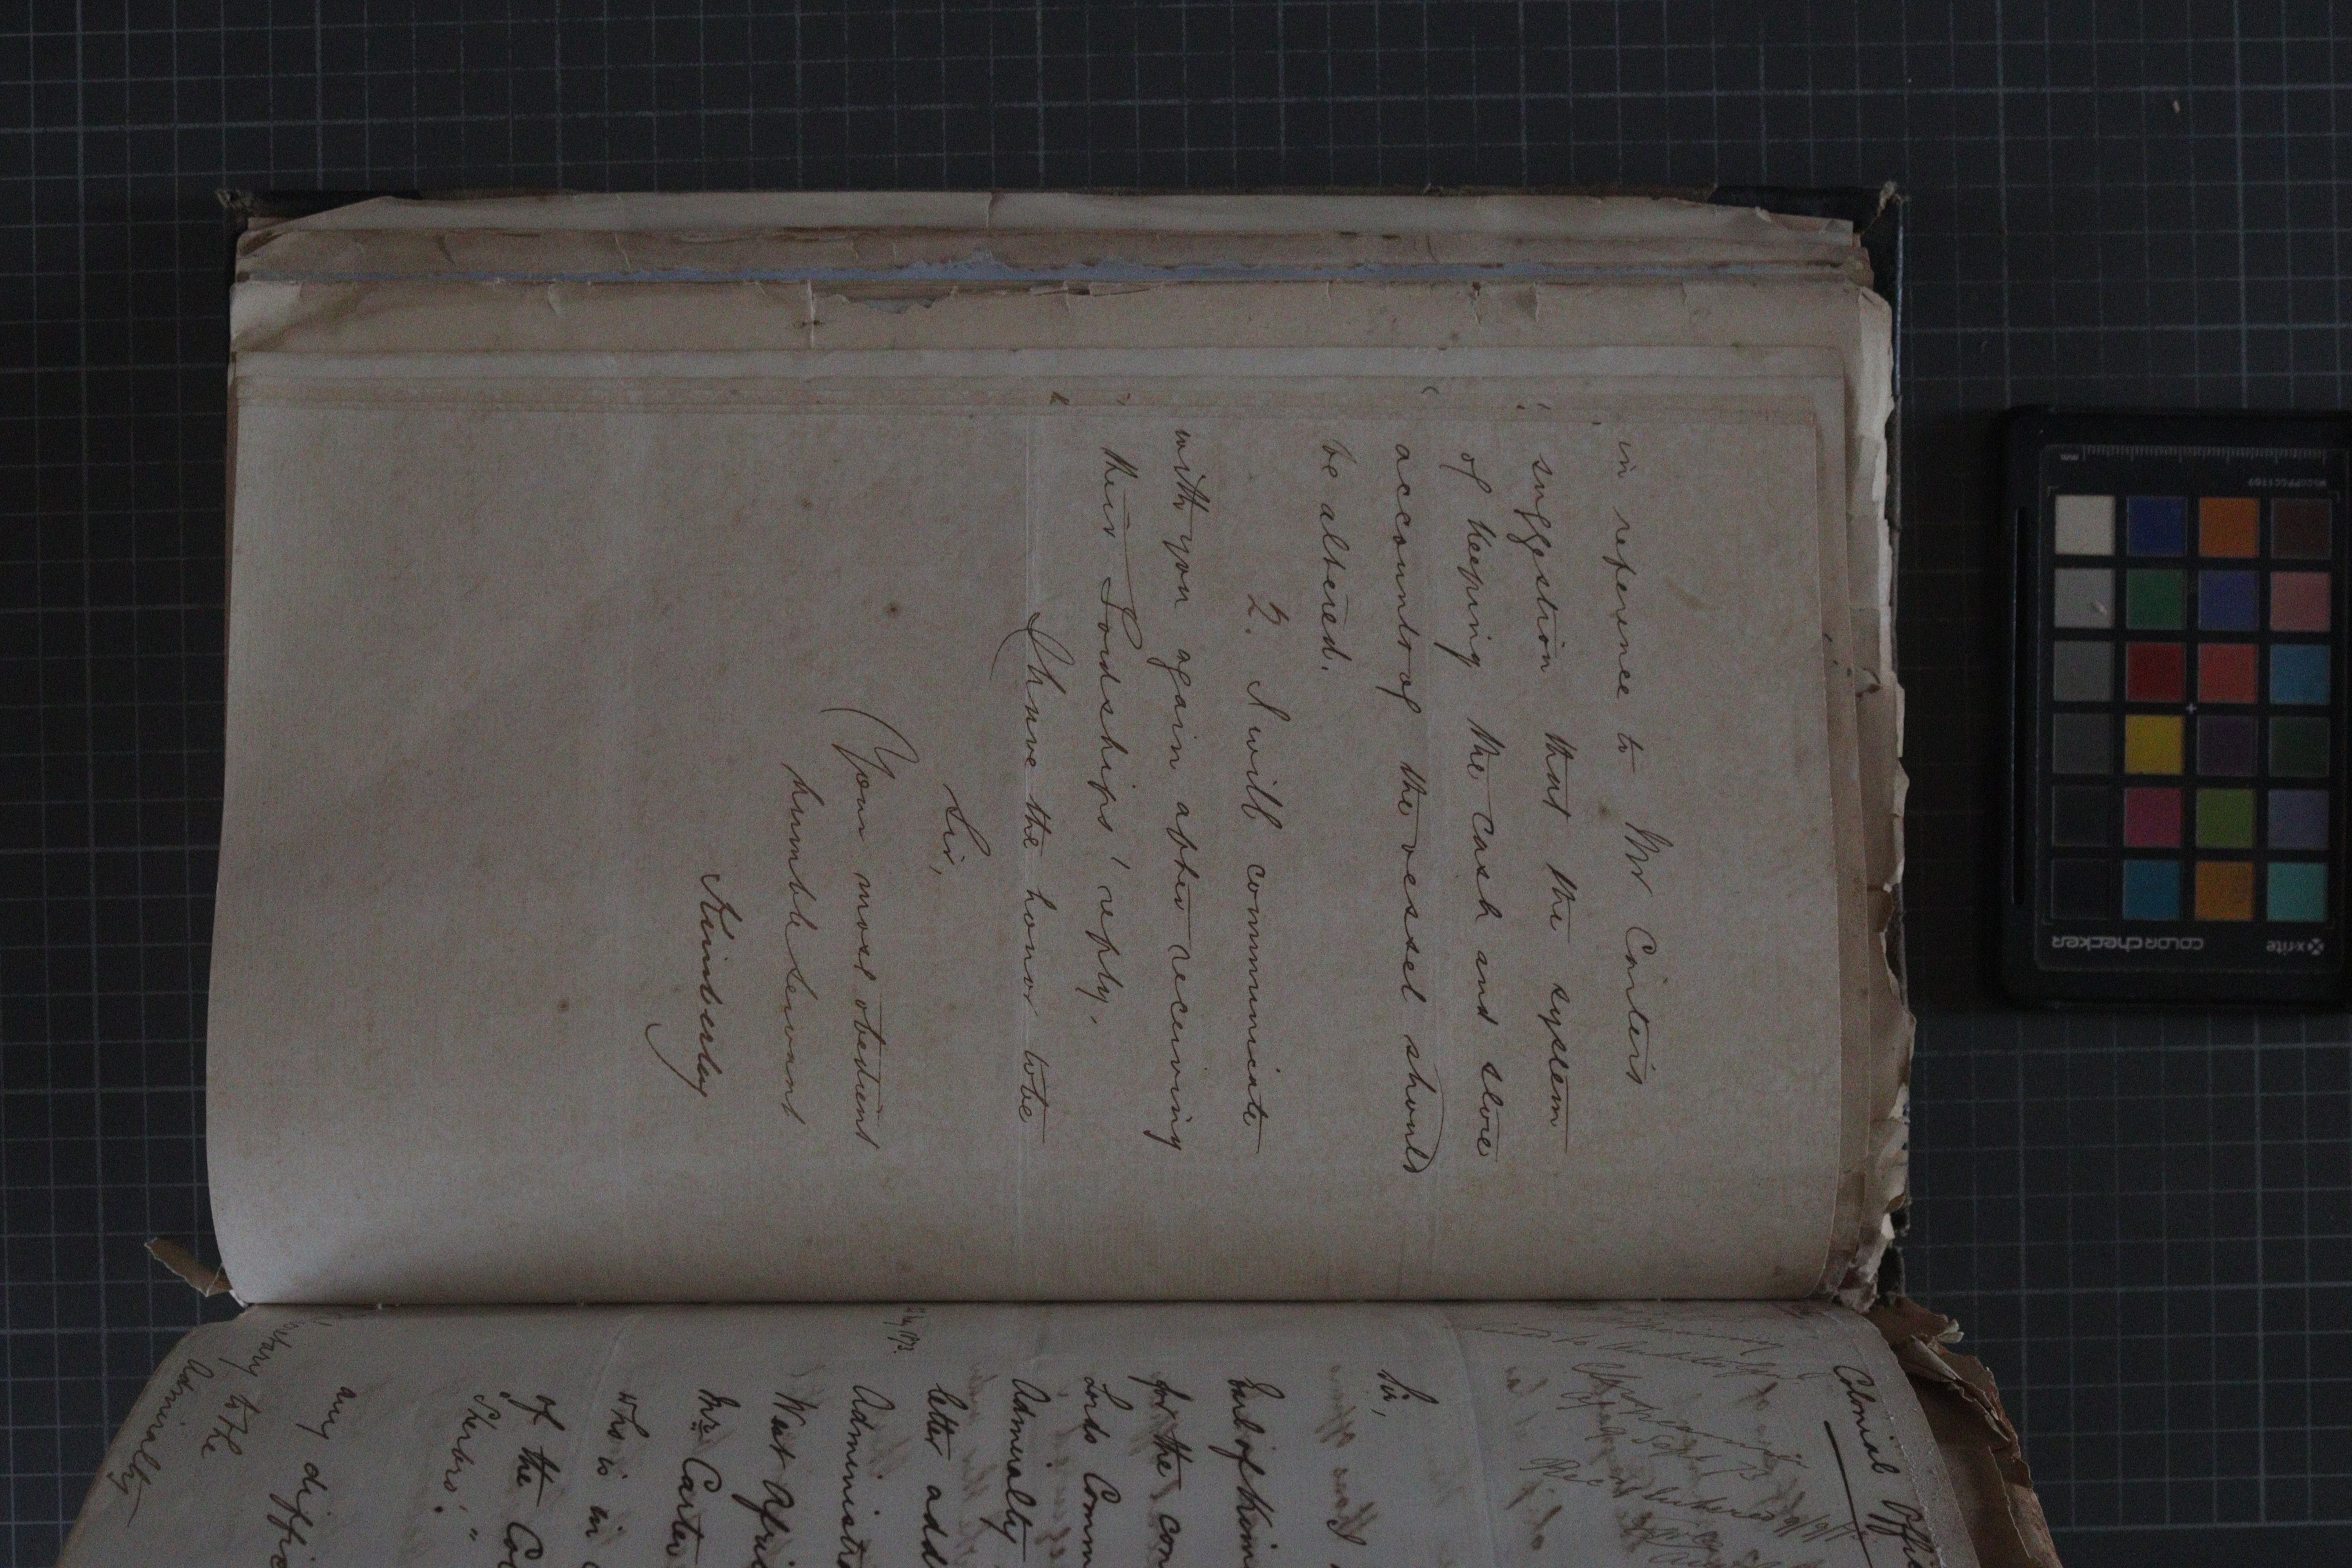 in reference to Mr Carter's
suggestion that the system
of keeping the cash and store
accounts of the vessel should
be altered.
2. I will communicate
with you again after receiving
their Lordships' reply.
I have the honor to be
Sir,
Your most obedient
humble Servant
Kimberley
Colonial Offi
Sir,
Earl of Kim
for the con
Lords Comm
Admiralty
letter add
Administ
West Afri
Mr. Carte
who is in
of the Co
Sherbro'."
any diffic
to the
Admiralty
x-rite
colorchecker
mm